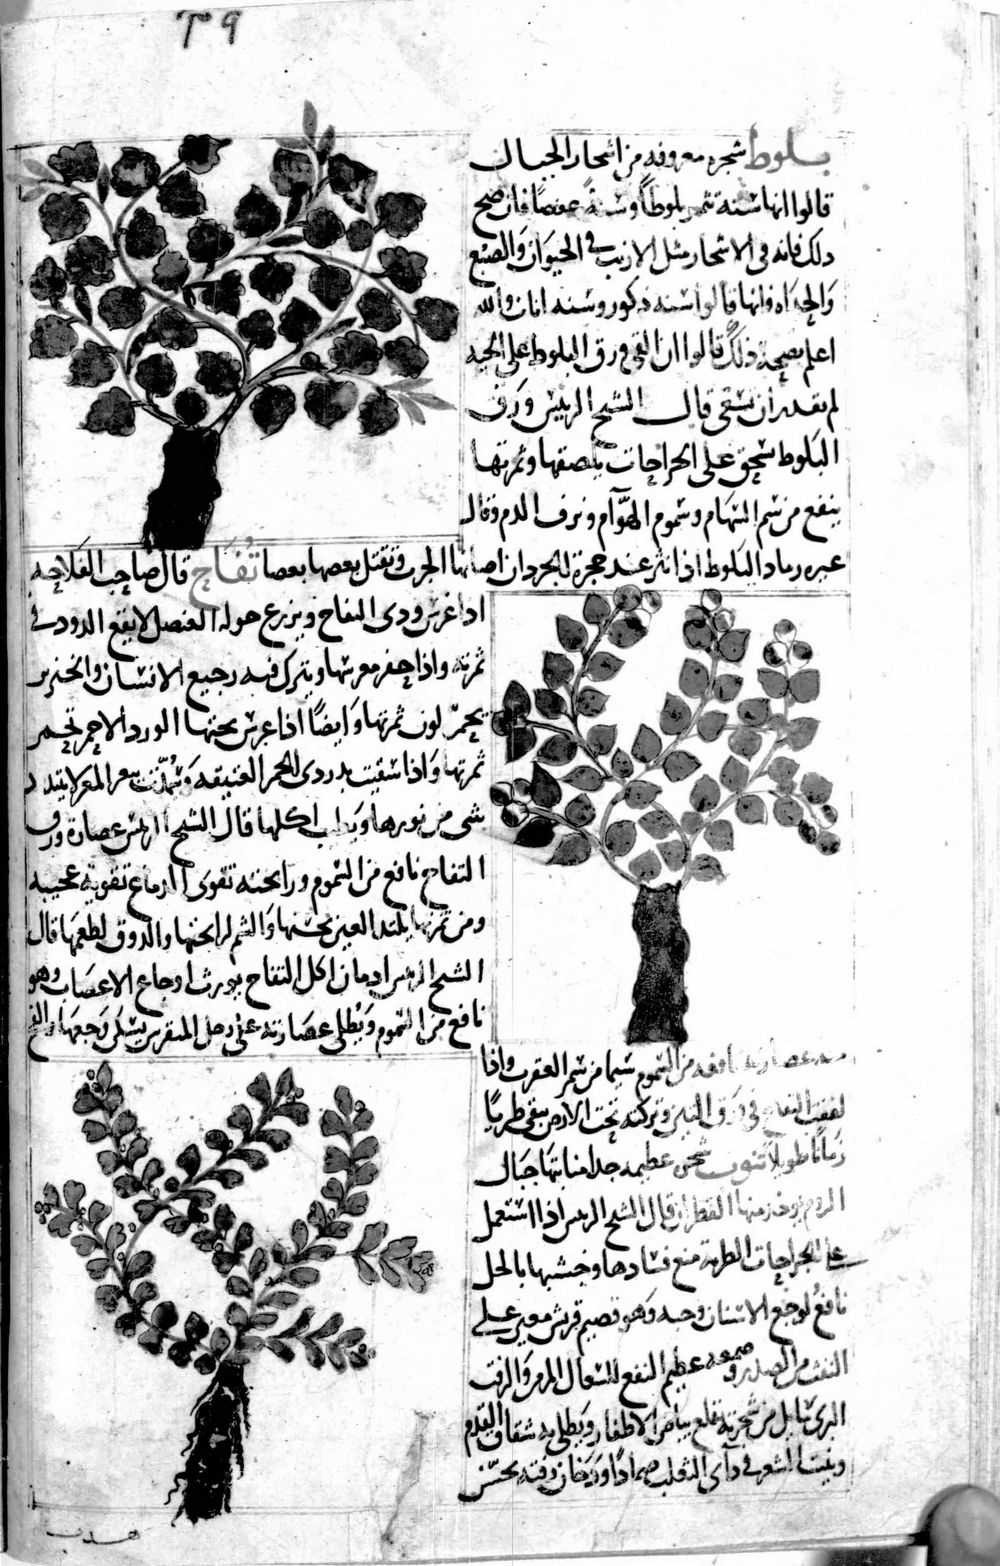 بلوط شجرة معروفه من اشجار الجبال
قالوا انها سنة تثمر بلوطاً وسنة عفصاً فان صح
ذلك فانه فى الاشجار مثل الارنب فى الحيوان والضبع
فانها قالوا سنه ذكور وسنه اناث والله
اعلم بصحة ذلك قالوا ان القى ورق البلوط على الحية
لم يقدر ان قال الشيخ الرييس ورق
البلوط سحق على الجراحات يلصقها وثمرتها
ينفع من سم السهام وسموم الهوام ونزف الدم وقال
غيره رماد البلوط اذا نثر عند حجرة الجردان اصابها الجرب وتقتل بعضها بعضا تُفّاح قال صاحب الفلاحه
اذا غرس ودى التفاح ويزرع حوله العنصل لا يقع الدود فى
ثمرته واذا حفر مغرسها ويترك فيه رجيع الانسان والخنزير
يحمرّ لون ثمرتها وايضًا اذا غرس تحتها الورد الاحمر تحمر
ثمرتها واذا سقيت بدردى الخمر العتيقه
شى من نورها ويطيب اكلها قال الشيخ الرييس عصارة ورق
التفاح نافع من السموم ورايحته تقوى الدماغ تقوية عجيبه
ومن ثمرتها يلتذ العين بحسنها والشم لرايحتها والذوق لطعمها قال
الشيخ الرييس ادمان اكل التفاح يورث اوجاع الاعصاب وهو
نافع من السموم ويطلى عصارته على رجل المنقرس يسكن وجعها
عصارته نافعه من السموم سيما من سم العقرب واذا
لففت التفاح فى ورق التين وتركته تحت الارض يبقى طريًا
زمانا طويلا تنوب شجر عظيمه جدا منابتها جبال
الروم يوخذ منها القطران قال الشيخ الرييس اذا استعمل
على الجراحات الطرية منع فسادها وخشبها بالخل
نافع لوجع الاسنان وحبه وهو قضيم قريش معين على
النفث من الصدر وصمغه عظيم النفع للسعال المزمن والزفت
الذى سايل من شجرته يقلع بياض الاظفار ويطلى به شقاق القدم
وينبت الشعر فى داء الثعلب ضمادًا ودخان زفته يحسّن